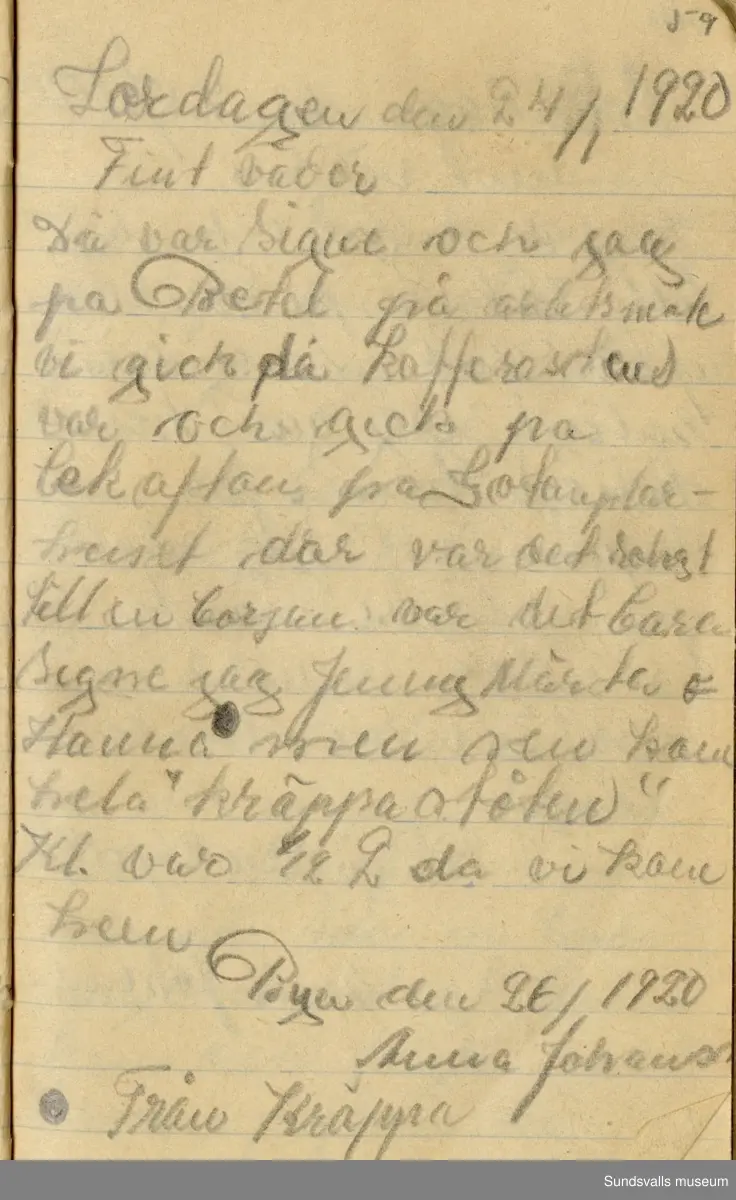 59
Lördagen den 24/1 1920
Fint väder
Då var Signe och jag
på Betel på
vi gick då
var och gick på
lekafton på Godtemplar-
huset där var det
till en början var det bara
Signe jag Jenny Märta o
Hanna men sen kom
hela "kräppa
Kl. var 1/2 2 da vi kom
hem
den 26/1 1920
Anna Johans
Från Kräppa
Sundsvalls museum